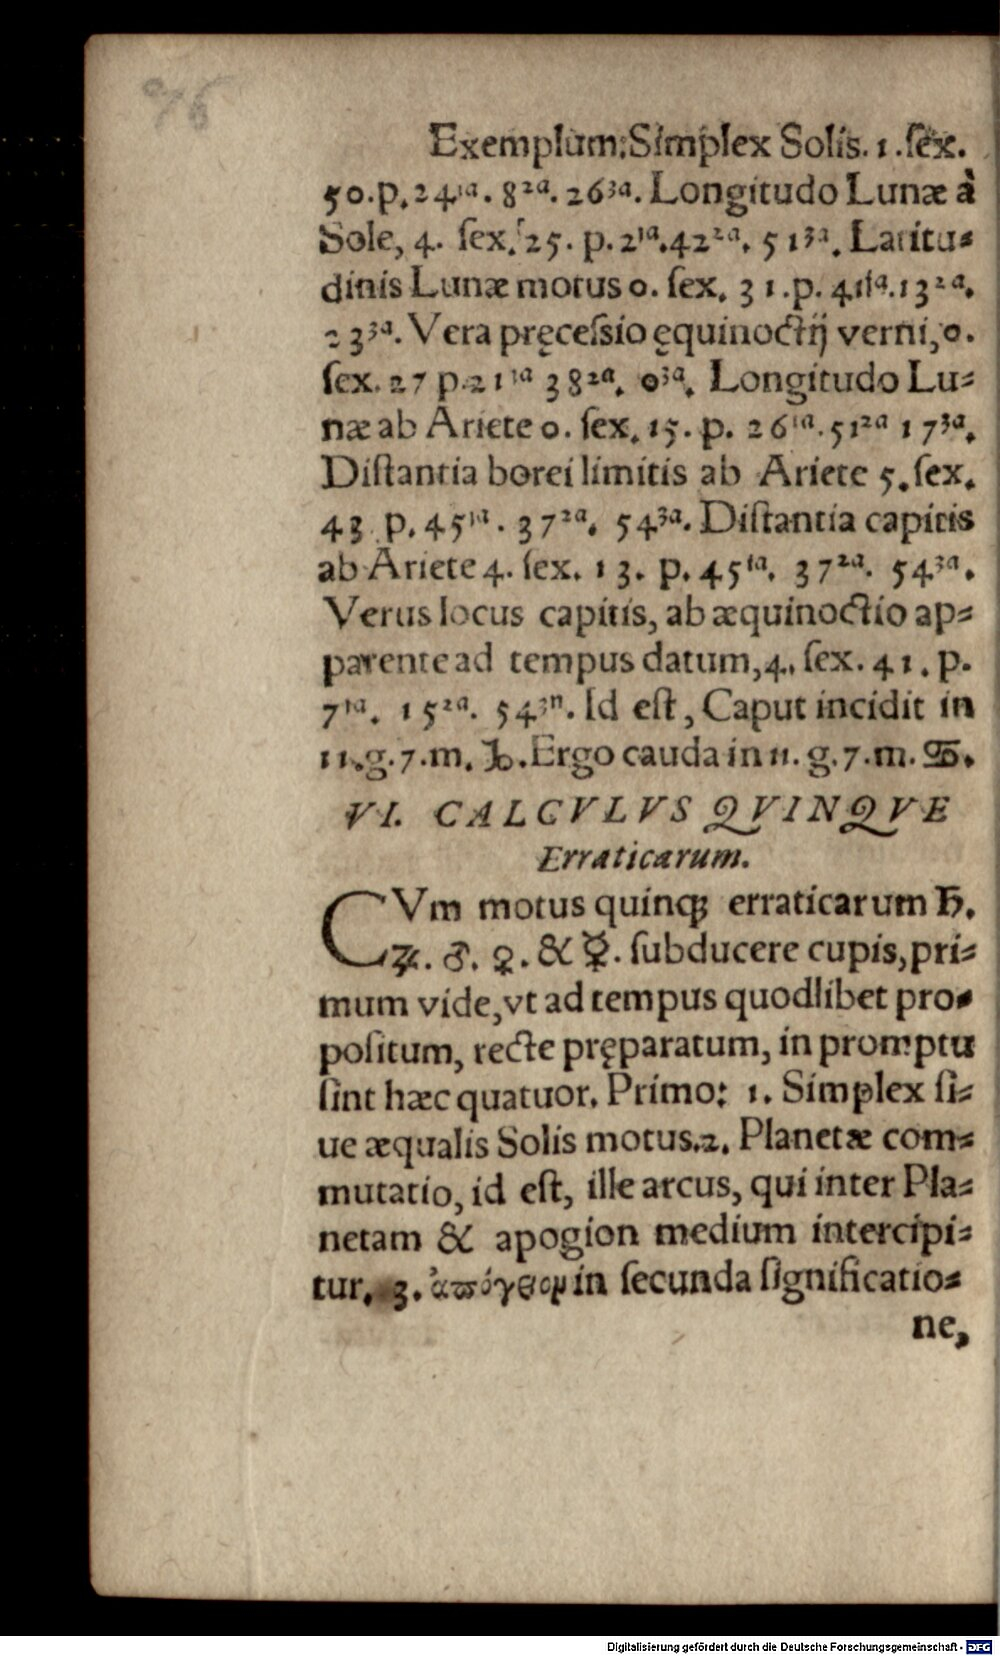 76
Exemplum: Simplex Solis. 1. ſex.
50. p. 24¹ᵃ. 8²ᵃ. 26³ᵃ. Longitudo Lunæ à
Sole, 4. ſex. 25. p. 2¹ᵃ. 42²ᵃ. 51³ᵃ. Latitu⸗
dinis Lunæ motus 0. ſex. 31. p. 41¹ᵃ. 13²ᵃ.
23³ᵃ. Vera pręceſsio ęquinoctij verni, 0.
ſex. 27 p. 21¹ᵃ 38²ᵃ. 0³ᵃ. Longitudo Lu⸗
næ ab Ariete 0. ſex. 15. p. 26¹ᵃ. 51²ᵃ 17³ᵃ.
Diſtantia borei limitis ab Ariete 5. ſex.
43 p. 45¹ᵃ. 37²ᵃ. 54³ᵃ. Diſtantia capitis
ab Ariete 4. ſex. 13. p. 45¹ᵃ. 37²ᵃ. 54³ᵃ.
Verus locus capitis, ab æquinoctio ap⸗
parente ad tempus datum, 4. ſex. 41. p.
7¹ᵃ. 15²ᵃ. 54³ᵃ. Id eſt, Caput incidit in
11. g. 7. m. ♑. Ergo cauda in 11. g. 7. m. ♋.
VI. CALCVLVS QVINQVE
Erraticarum.
CVm motus quinqꝫ erraticarum ♄.
♃. ♂. ♀. & ☿. ſubducere cupis, pri⸗
mum vide, vt ad tempus quodlibet pro⸗
poſitum, recte pręparatum, in promptu
ſint hæc quatuor. Primo: 1. Simplex ſi⸗
ue æqualis Solis motus. 2. Planetæ com⸗
mutatio, id eſt, ille arcus, qui inter Pla⸗
netam & apogion medium intercipi⸗
tur. 3. ἀπόγεομ in ſecunda ſignificatio⸗
ne,
Digitalisierung gefördert durch die Deutsche Forschungsgemeinschaft - DFG